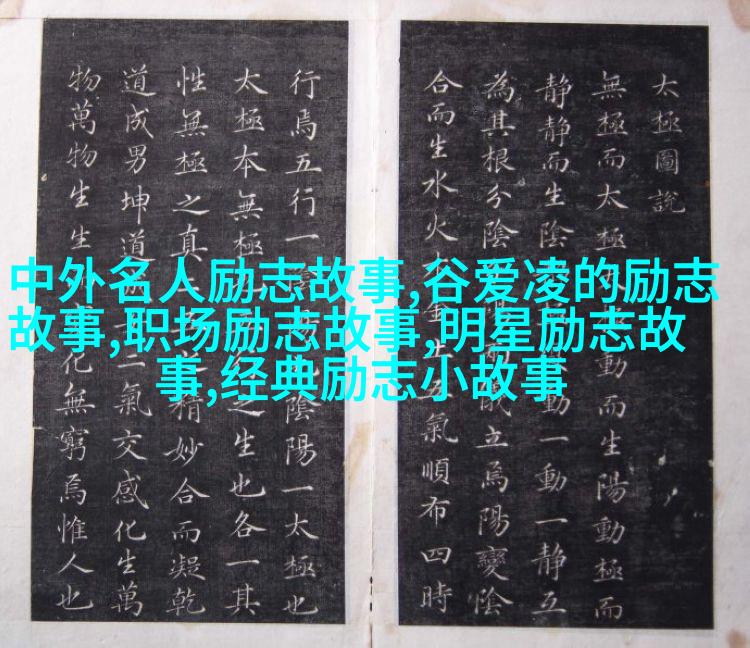 中外名人励志故事,谷爱凌的励志
故事,职场励志故事,明星励志故
事,经典励志小故事
太極圖說
無極而太極動而生陽動極而
静静而生陰動一動一静互
為其根分陰立焉陽變陰
合而生水火金土五氣順布四時
行焉五行一陰陽陰陽一太極也
太極本無極之生也各一其
性無極之真之精妙合而凝乾
道成男坤道二氣交感化生萬
物萬物生生化無窮焉惟人也